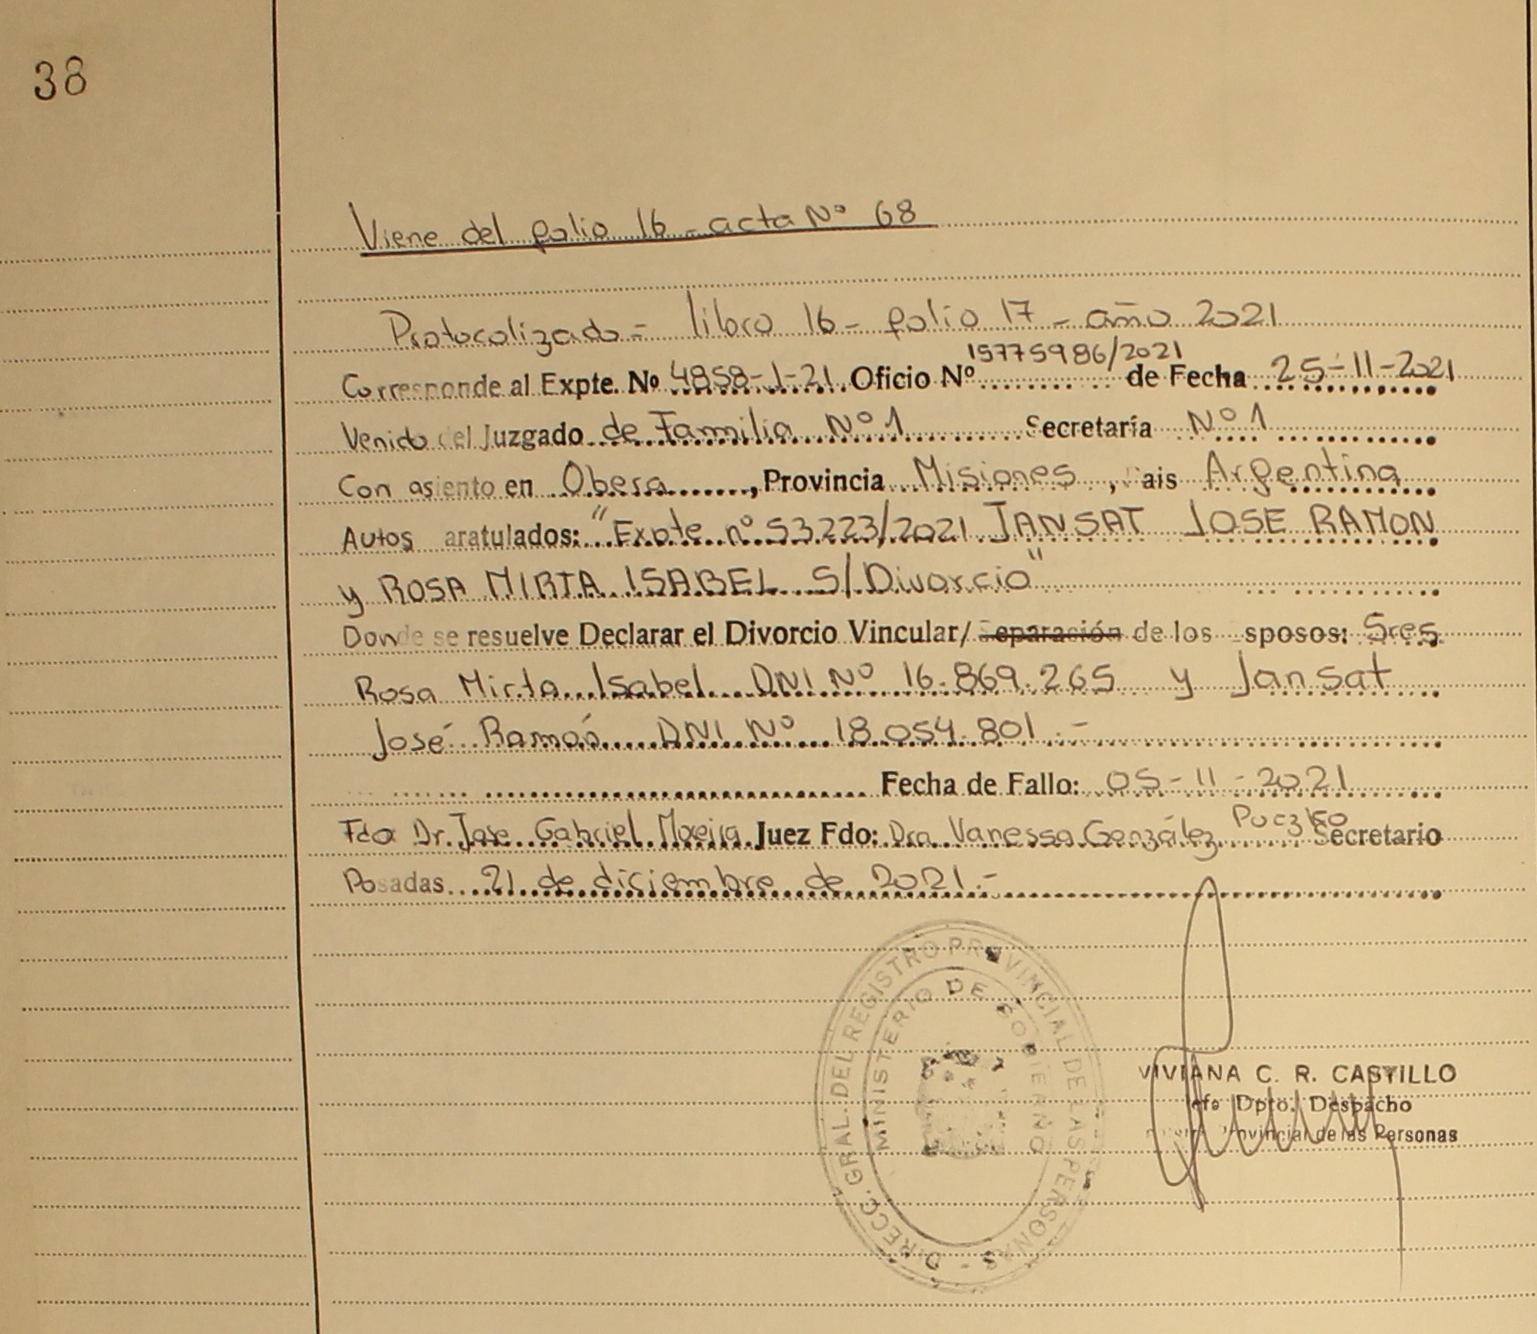 38
Viene del folio 16 - acta Nº 68
Protocolizado = libro 16 - folio 17 - año 2021
Corresponde al Expte. Nº 4858-1-21. Oficio Nº 15775986/2021 de Fecha 25-11-2021
Venido del Juzgado de Familia Nº 1 Secretaría Nº 1
Con asiento en Obera, Provincia Misiones, Pais Argentina
Autos aratulados: "Expte nº 53.223/2021 JANSAT JOSE RAMON
y ROSA MIRTA ISABEL S/Divorcio"
Donde se resuelve Declarar el Divorcio Vincular/ Separación de los sposos: Sres
Rosa Mirta Isabel DNI Nº 16.869.265 y Jansat
José Ramón DNI Nº 18.054.801.-
Fecha de Fallo: 05-11-2021
Fdo Dr. Jose Gabriel Moreira Juez Fdo: Dra. Vanessa González Puczko Secretario
Posadas 21 de diciembre de 2021.-
DIRECC. GRAL. DEL REGISTRO PROVINCIAL DE LAS PERSONAS -
MINISTERIO DE GOBIERNO
VIVIANA C. R. CASTILLO
Jefe Dpto. Despacho
Provincial de las Personas